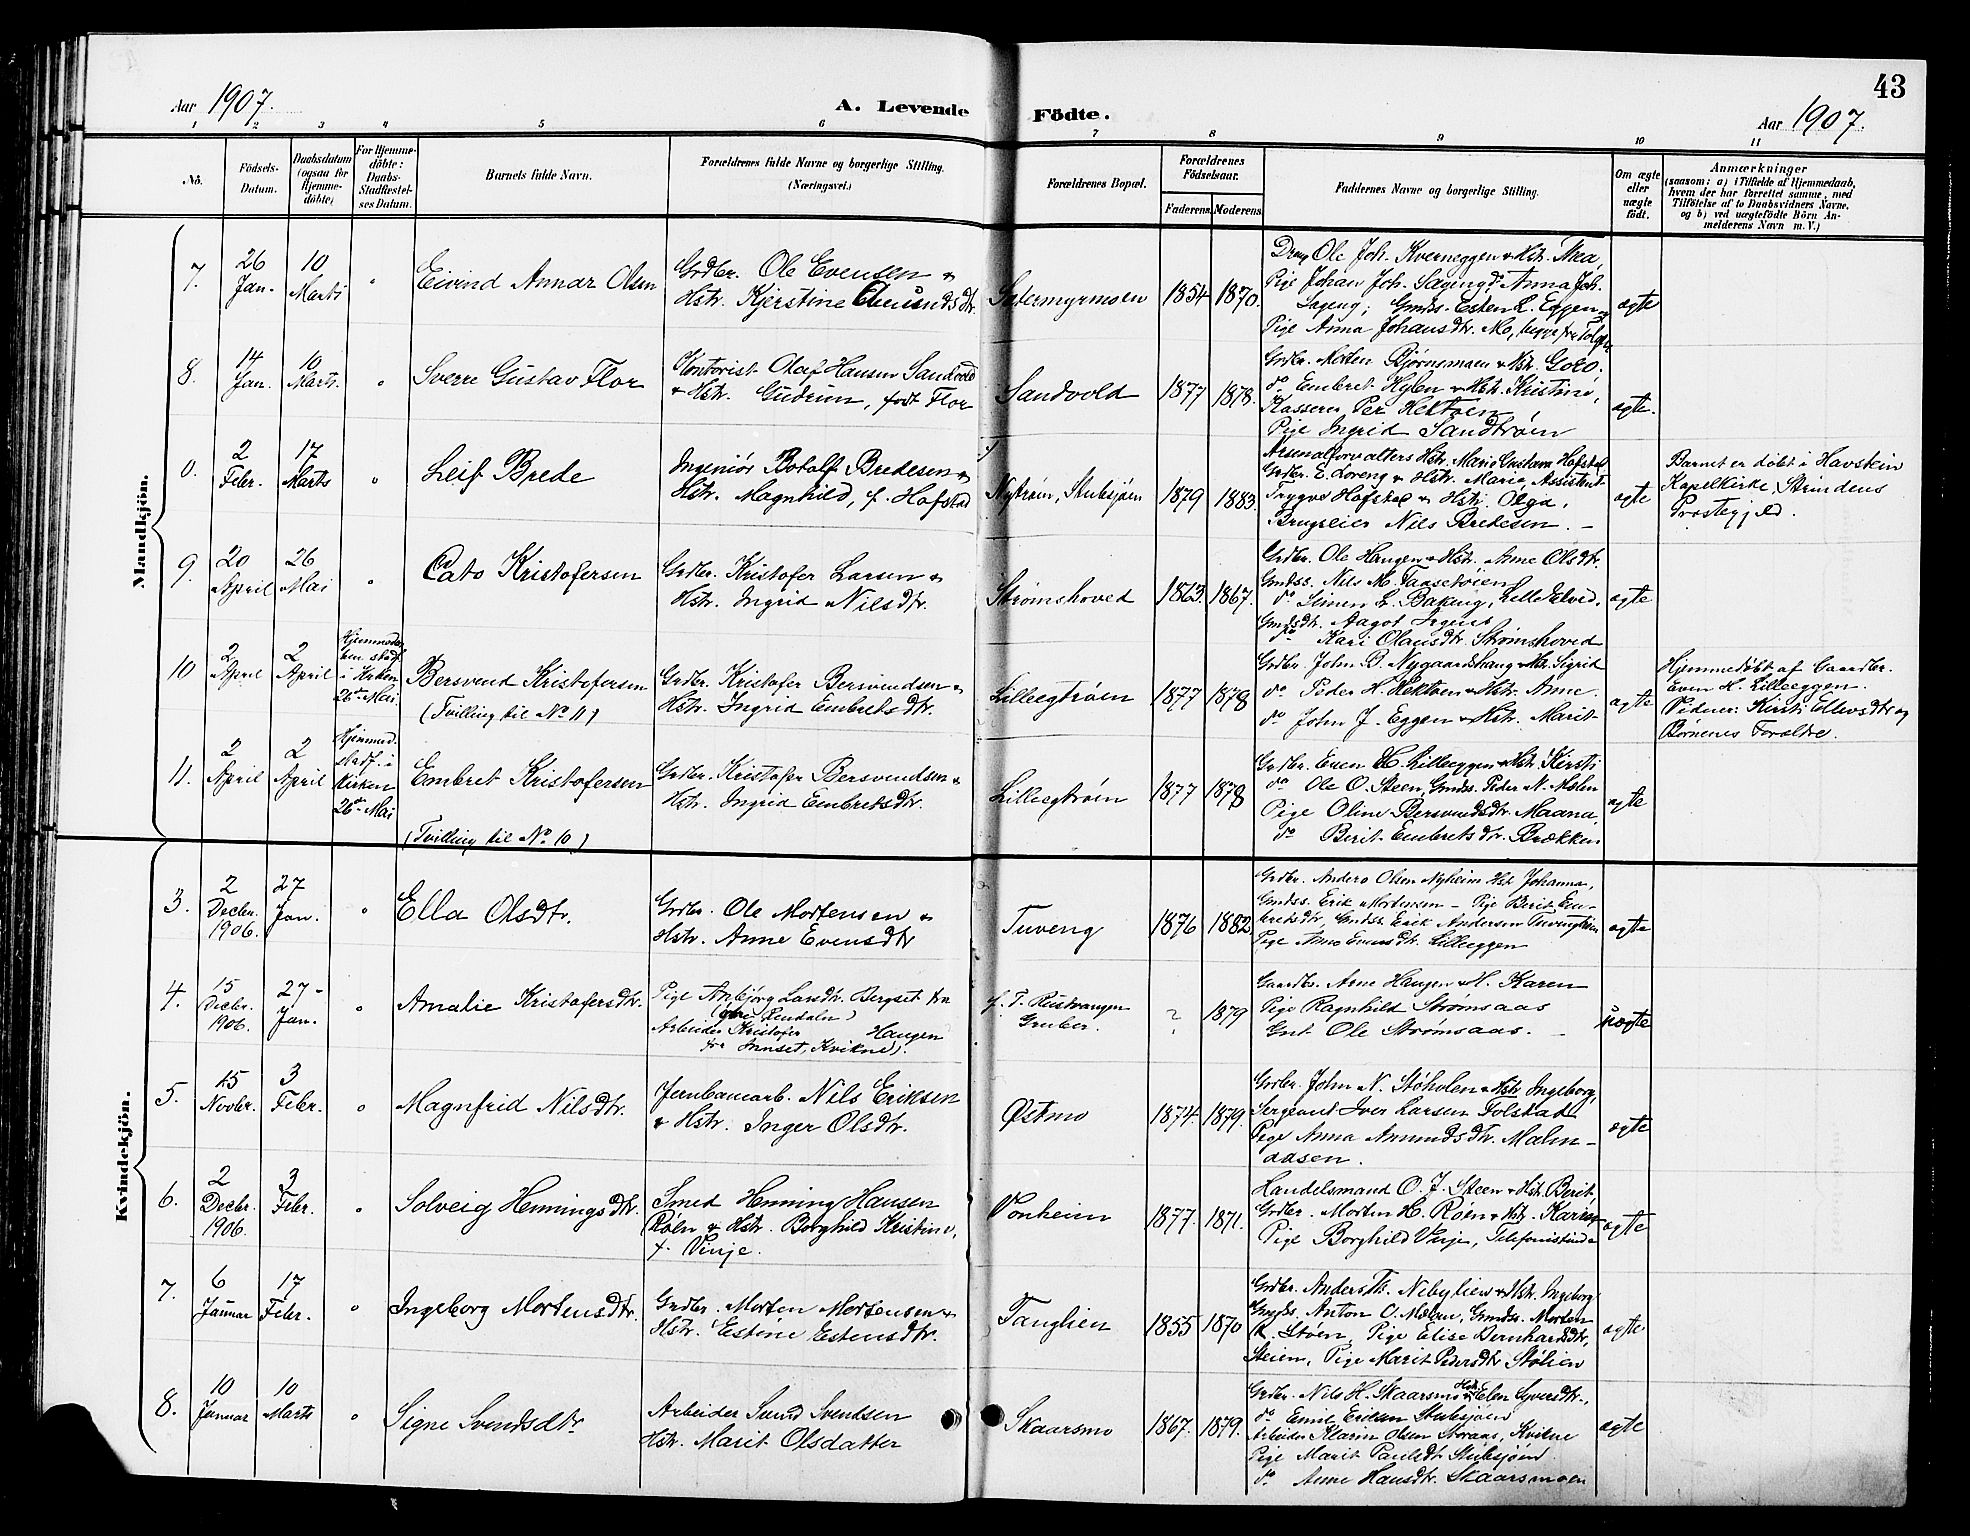 43
Aar 1907. A. Levende Födte. Aar 1907.
1 2 3 4 5 6 7 8 9 10 11
No.
Födsels-
Datum.
Daabsdatum
(ogsaa for
Hjemme-
döbte)
For Hjemme-
döbte:
Daabs-
Stadfæstel-
ses Datum.
Barnets fulde Navn.
Forældrenes fulde Navne og borgerlige Stilling.
(Næringsvei.)
Forældrenes Bopæl.
Forældrenes
Födselsaar.
Faderens. Moderens.
Faddernes Navne og borgerlige Stilling.
Om ægte
eller
uægte
födt.
Anmærkninger
(saasom: a) i Tilfælde af Hjemmedaab,
hvem der har forrettet samme, med
Tilföielse af to Daabsvidners Navne,
og b) ved uægtefödte Börn An-
melderens Navn m. V.)
Mandkjön.
7.
26
Jan.
10
Marts
"
Eivind Annar Olsen
Grdbr. Ole Evensen &
Hstr. Kjerstine
Sætermyrmoen
1854 1870.
Ole Joh. Kverneggen & Hstr. Thea,
Pige Johan Joh. Sageng, Anna Joh.
Sageng; Gmdss. Esten E. Eggen og
Pige Anna Johansdtr. Mo,
ægte
8.
14
Jan.
10
Marts.
"
Sverre Gustav Flor
Kontorist Olaf Hansen Sandvold
& Hstr. Gudrun, født Flor
Sandvold
1877 1878.
Grdbr. Morten Bjørnsmoen & Hstr. Goro.
do Embret Hylen & Hstr. Kristine,
Kasserer Per Hektoen
Pige Ingrid Sandtrøen
ægte.
0.
2
Febr.
17
Marts
"
Leif Brede
Ingeniør Botolf Bredesen &
Hstr. Magnhild, f. Hofstad
Nytrøen, Stubsjøen
1879 1883.
Arsenalforvalters Hstr. Marie Gustava Hofstad
Grdbr. E. Loreng & Hstr. Marie, Assistent
Trygve Hofstad & Hstr. Olga,
Brugseier Nils Bredesen. -
ægte
Barnet er døbt i Havstein
Kapelkirke, Strindens
Prestegjeld.
9.
20
April
26
Mai
"
Cato Kristofersen
Grdbr. Kristofer Larsen &
Hstr. Ingrid Nilsdtr.
Strømshoved
1863. 1867.
Grdbr. Ole Haugen & Hstr. Anne Olsdtr.
Gmdss. Nils M. Taasetrøien
do Simen E. Bakeng, Lille Elved.
Gmdsdtr. Aagot
do Kari Olausdtr. Strømshoved
ægte
10
2
April
2
April
Hjemmedaa-
ben stadf.
i Kirken
26de Mai.
Bersvend Kristofersen
(Tvilling til No 11)
Grdbr. Kristofer Bersvendsen &
Hstr. Ingrid Embretsdtr.
Lilleegtrøen
1877 1878
Grdbr. John P. Nygaardshaug & Hstr. Sigrid
do Peder H. Hektoen & Hstr. Anne.
do John J. Eggen & Hstr. Marit
ægte
Hjemmedøbt af Gaardbr.
Even H. Lilleeggen.
Vidner: Kirsti Ellevsdtr og
Børnenes Forældre.
11.
2
April
2
April
Hjemmed.
stadf. i
Kirken
26de Mai
Embret Kristofersen
(Tvilling til No 10)
Grdbr. Kristofer Bersvendsen &
Hstr. Ingrid Embretsdtr.
Lilleegtrøen
1877 1878
Grdbr. Even H. Lilleeggen & Hstr. Kirsti
do Ole O. Steen, Gmdss. Peder N. Moen
Pige Oline Bersvendsdtr. Maana,
do Berit Embretsdtr. Brækken
ægte
Kvindekjön.
3.
2
Decbr.
1906.
27
Jan.
"
Ella Olsdtr.
Grdbr. Ole Mortensen &
Hstr. Anne Evensdtr
Tuveng
1876 1882
Grdbr. Anders Olsen Nyheim Hst Johanna,
Gmdss. Erik Mortensen - Pige Berit Em-
bretsdtr, Gmdss. Erik Andersen
Pige Anne Evensdtr. Lilleeggen
ægte
4.
15
Decbr.
1906.
27
Jan.
"
Amalie Kristofersdtr.
Pige Anbjørg Larsdtr. Bergset fra
(Øvre Rendalen)
Arbeider Kristofer Haugen
fra Innset, Kvikne).
p. T. Røstvangen
Gruber.
? 1879
Gaardbr. Arne Haugen & H. Karen
Pige Ragnhild Strømsaas
Gmt. Ole Strømsaas. -
uægte
5.
15
Novbr.
3
Febr.
"
Magnfrid Nilsdtr.
Jernbanearb. Nils Eriksen
& Hstr. Inger Olsdtr.
Østmo
1874. 1879.
Grdbr. John N. Støholen & Hstr Ingeborg,
Sergeant Iver Larsen Tolstad
Pige Anna Amundsdtr. Malm-
aasen.
ægte
6.
2
Decbr.
1906.
3
Febr.
"
Solveig Henningsdtr.
Smed Henning Hansen
Røen & Hstr. Borghild Kristine,
f. Vinje.
Vonheim
1877. 1871.
Handelsmand O. J. Steen & Hstr. Berit,
Grdbr. Morten H. Røen & Hstr. Karen
Pige Borghild Vinje, Telefonistinde
ægte
7.
6
Januar
17
Febr.
"
Ingeborg Mortensdtr.
Grdbr. Morten Mortensen &
Hstr. Estine Estensdtr.
Tanglien
1855 1870
Grdbr. Anders Th. Nebylien & Hstr. Ingeborg
Gmdss. Anton O. Moen, Gmdss. Morten
R. Støen, Pige Elise Bernhardsdtr,
Steien, Pige Marit Pedersdtr Stølien
ægte
8.
10
Januar
10
Marts
"
Signe Svendsdtr
Arbeider Svend Svendsen
Hstr. Marit Olsdatter
Skaarsmo
1867. 1879.
Grdbr. Nils H. Skaarsmo & Hstr. Elen Syversdtr.,
do Emil Eriksen Stubsjøen
Arbeider Klarin Olsen Storaas, Kvikne
Pige Marit Paulsdtr Stubsjøen
do Anne Hansdtr. Skaarsmoen
ægte